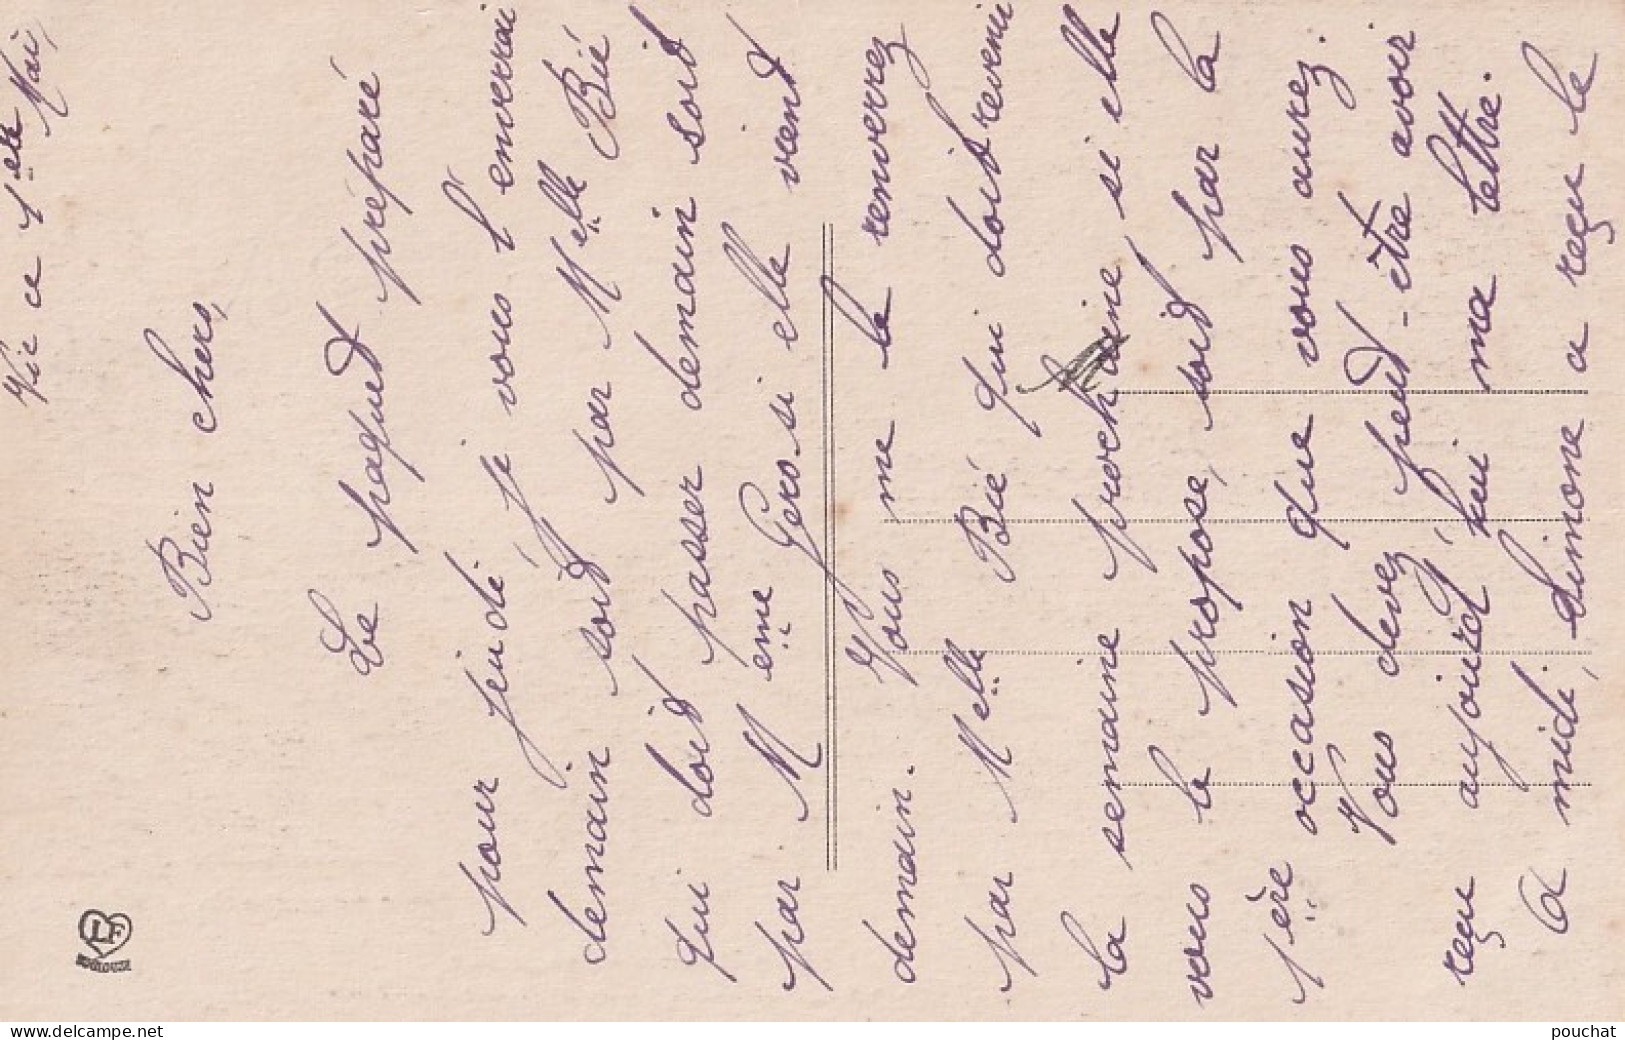 Vic ce 1er Mai,
Bien chers,
Le paquet préparé
pour jeudi je vous l'enverrai
demain soit par Melle Bié
qui doit passer demain soit
par Meme Gers si elle vient
demain. Vous me le renverrez
par Melle Bié qui doit revenir
la semaine prochaine, si elle
vous le propose, soit par la
père occasion que vous aurez.
Vous devez peut-être avoir
reçu aujourd'hui ma lettre.
A midi, Simone a reçu le
LF
TOULOUSE
www.delcampe.net
pouchat